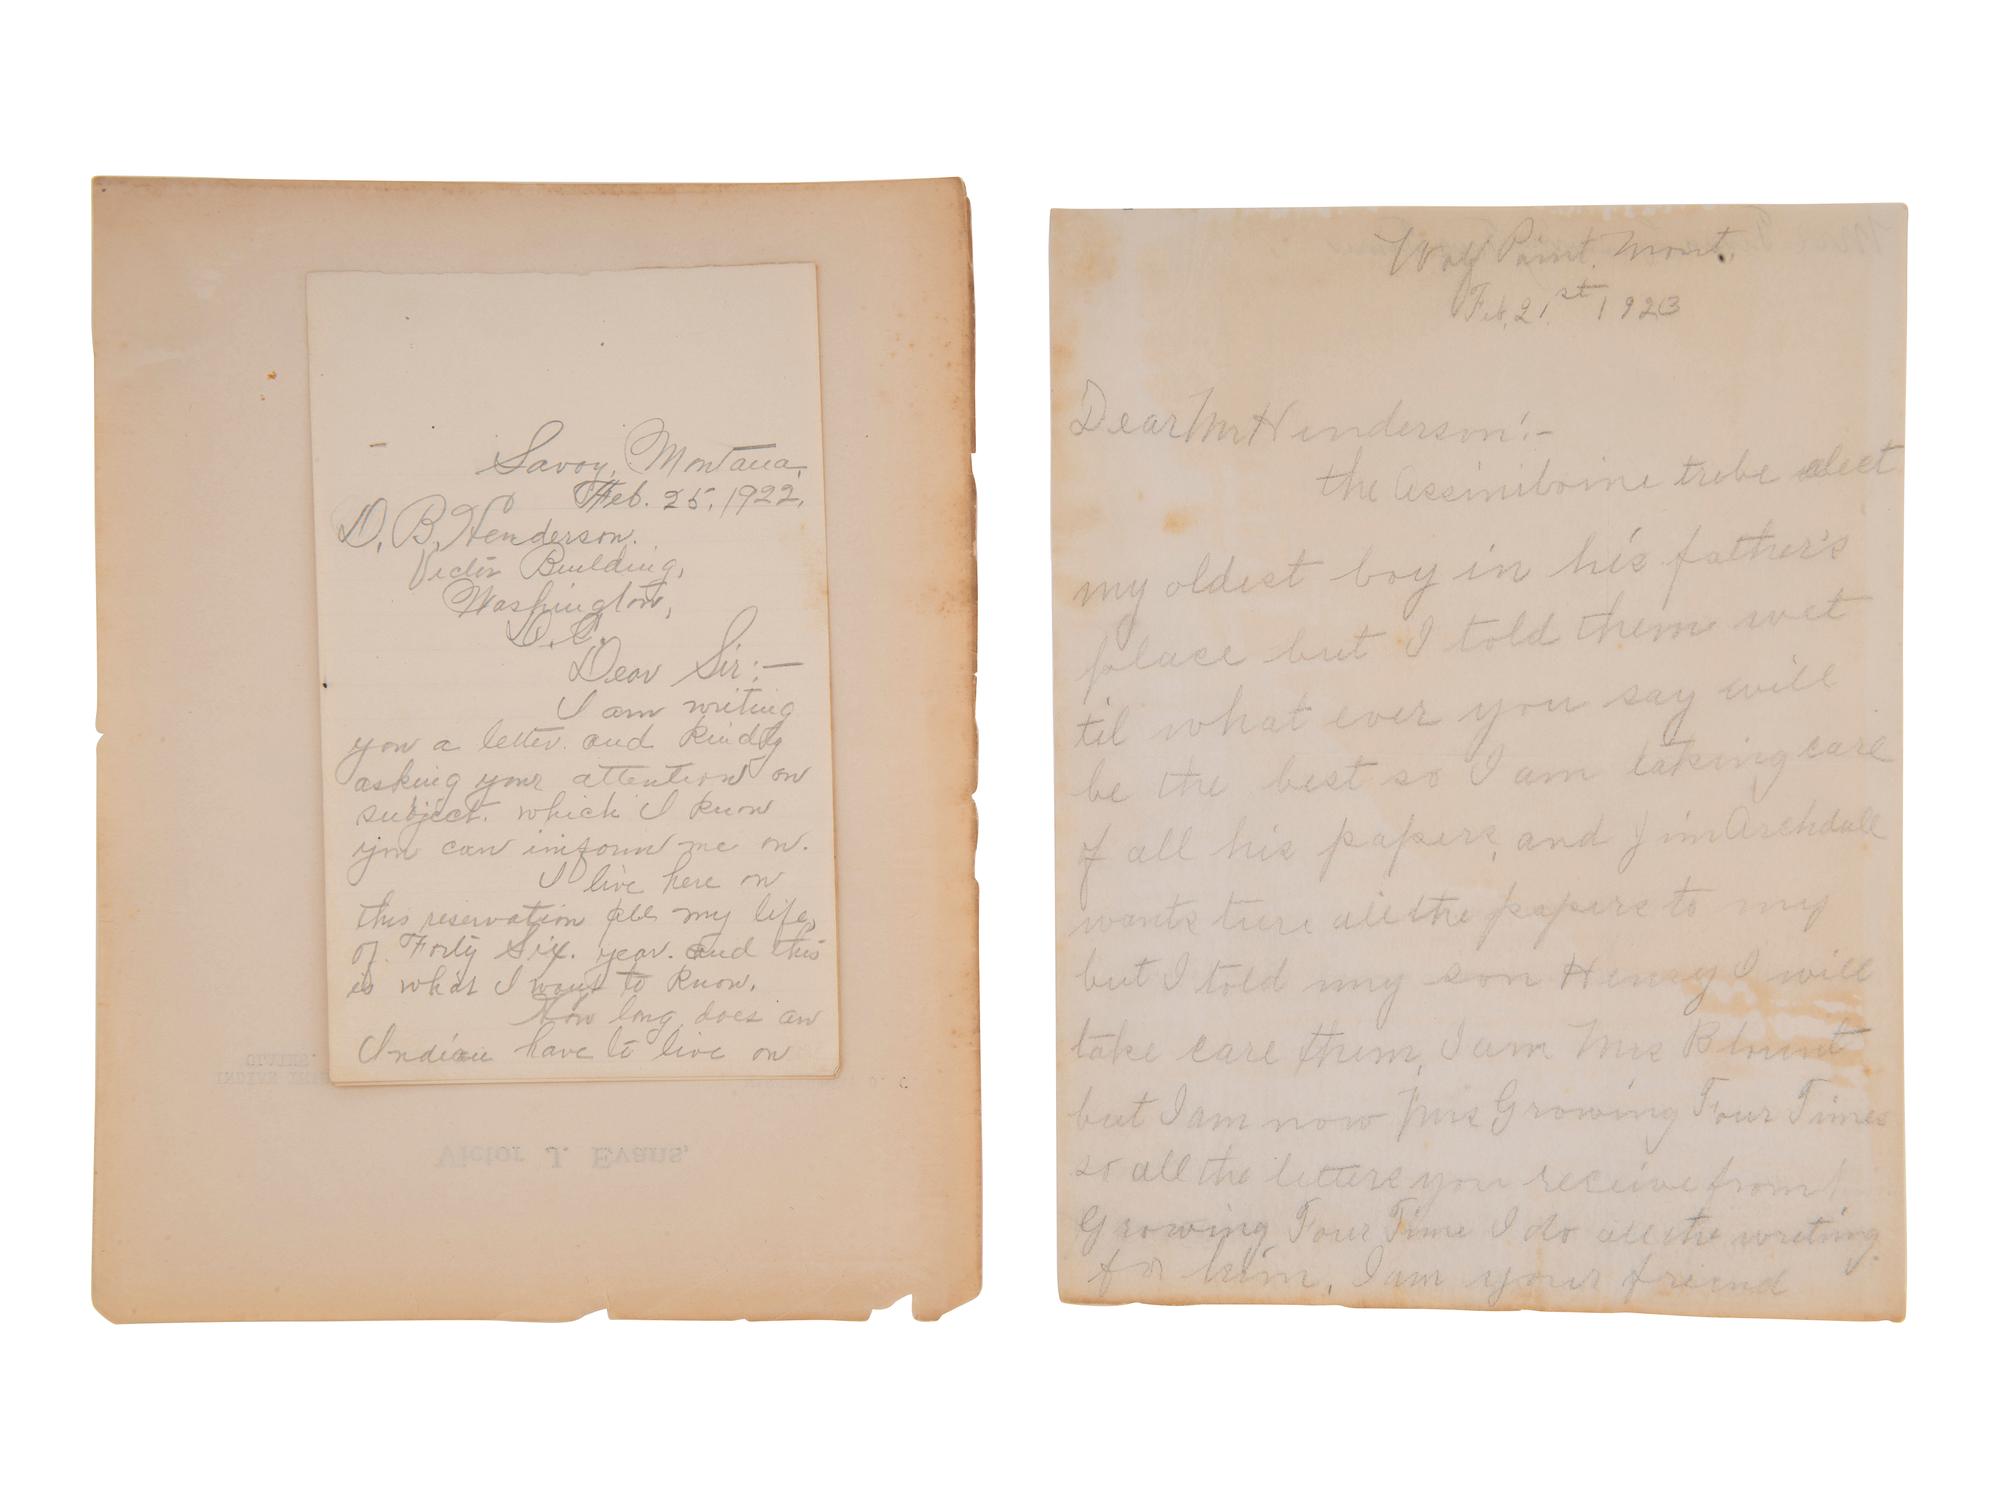 Savoy, Montana,
Feb. 25, 1922.
D. B. Henderson.
Victor Building,
Washington,
D. C.
Dear Sir:—
I am writing
you a letter. and kindly
asking your attention on
subject. which I know
you can inform me on.
I live here on
this reservation all my life,
of Forty Six. year. and this
is what I want to know.
How long does an
Indian have to live on
Victor J. Evans,
Wolf Point, Mont.
Feb. 21st 1923
Dear Mr Henderson:—
the Assiniboine tribe elect
my oldest boy in his father's
place but I told them wet
til what ever you say will
be the best so I am taking care
of all his papers, and Jim Archdall
wants ture all the papers to my
but I told my son Henry I will
take care them, I am Mrs Blount
but I am now Mrs Growing Four Times
so all the letters you receive from
Growing Four Time I do all the writing
for him, I am your friend